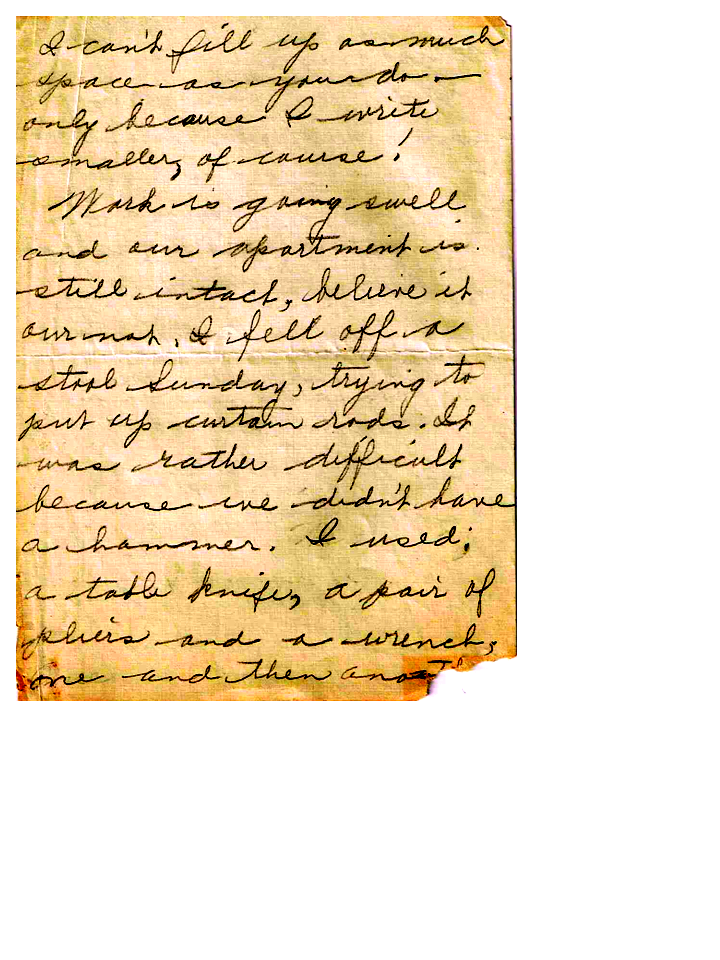 I can't fill up as much
space as you do —
only because I write
smaller, of course!
Work is going swell
and our apartment is
still intact, believe it
our not. I fell off a
stool Sunday, trying to
put up curtain rods. It
was rather difficult
because we didn't have
a hammer. I used;
a table knife, a pair of
pliers and a wrench,
one and then